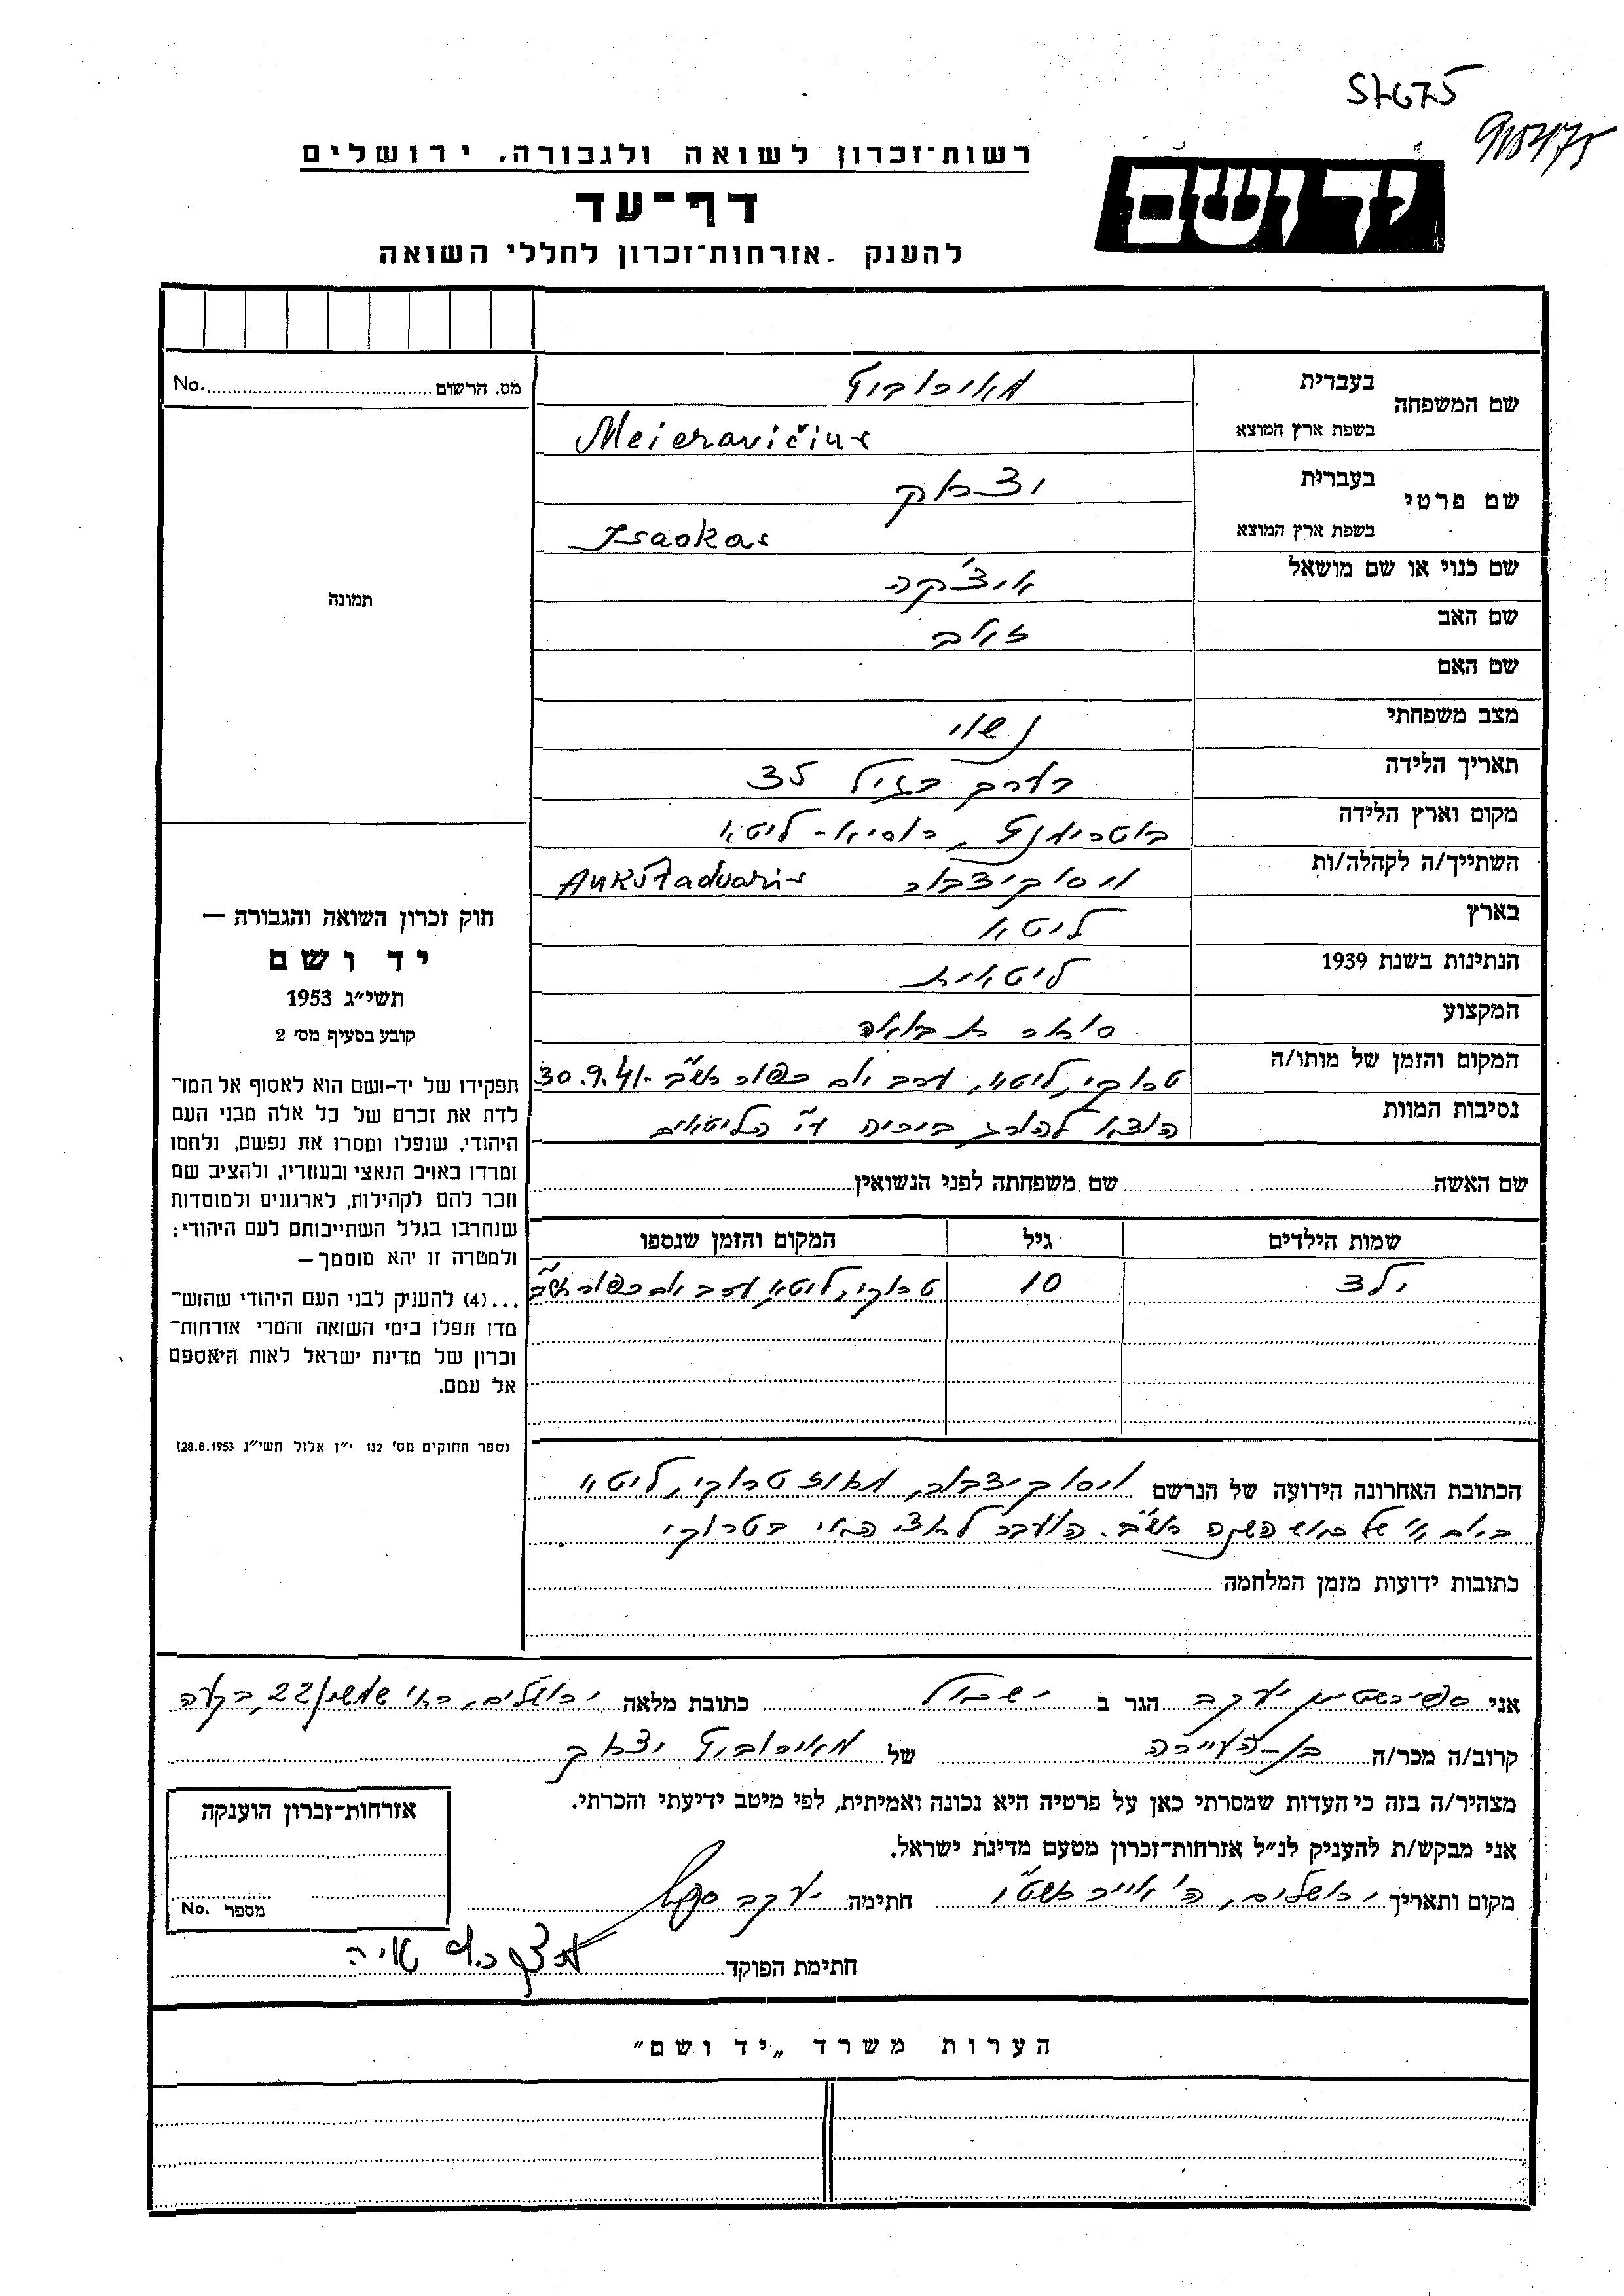 57675
רשות־זכרון לשואה ולגבורה. ירושלים
יד ושם
דף־עד
להענק אזרחות־זכרון לחללי השואה
מס. הרשום No.
תמונה
שם המשפחה
בעברית
מאירוביץ
בשפת ארץ המוצא
Meieravičius
שם פרטי
בעברית
יצחק
בשפת ארץ המוצא
Isaokas
שם כנוי או שם מושאל איצ'קה
שם האב זאב
שם האם
מצב משפחתי נשוי
תאריך הלידה בערך בגיל 35
מקום וארץ הלידה בוטרימנץ, רוסיא-ליטא
השתייך/ה לקהלה/ות ויסוקידבור Aukštadvaris
בארץ ליטא
הנתינות בשנת 1939 ליטאית
המקצוע סוחר תבואה
המקום והזמן של מותו/ה טרוקי, ליטא, ערב יום כפור תש"ב 30.9.41
נסיבות המוות הוצא להורג ביריה ע"י הליטאים
שם האשה שם משפחתה לפני הנשואין
שמות הילדים גיל המקום והזמן שנספו
ילד 10 טרוקי, ליטא, ערב יום כפור תש"ב
הכתובת האחרונה הידועה של הנרשם ויסוקידבור, מחוז טרוקי, ליטא
ביום של ראש השנה תש"ב. הועבר לחצי האי בטרוקי
כתובות ידועות מזמן המלחמה
חוק זכרון השואה והגבורה —
יד ושם
תשי״ג 1953
קובע בסעיף מס׳ 2
תפקידו של יד-ושם הוא לאסוף אל המו־
לדת את זכרם של כל אלה מבני העם
היהודי, שנפלו ומסרו את נפשם, נלחמו
ומרדו באויב הנאצי ובעוזריו, ולהציב שם
וזכר להם לקהילות, לארגונים ולמוסדות
שנחרבו בגלל השתייכותם לעם היהודי;
ולמטרה זו יהא מוסמך—
...(4) להעניק לבני העם היהודי שהוש־
מדו ונפלו בימי השואה והמרי אזרחות־
זכרון של מדינת ישראל לאות היאספם
אל עמם.
(ספר החוקים מס׳ 132 י״ז אלול תשי״ג 28.8.1953)
אני יעקב הגר ב ישראל כתובת מלאה ירושלים, 22, בקעה
קרוב/ה מכר/ה בן-העיירה של מאירוביץ יצחק
מצהיר/ה בזה כי העדות שמסרתי כאן על פרטיה היא נכונה ואמיתית, לפי מיטב ידיעתי והכרתי.
אני מבקש/ת להעניק לנ״ל אזרחות־זכרון מטעם מדינת ישראל.
מקום ותאריך ירושלים, ה' אייר תשט"ו חתימה יעקב
חתימת הפוקד
אזרחות־זכרון הוענקה
מספר No.
הערות משרד „יד ושם״